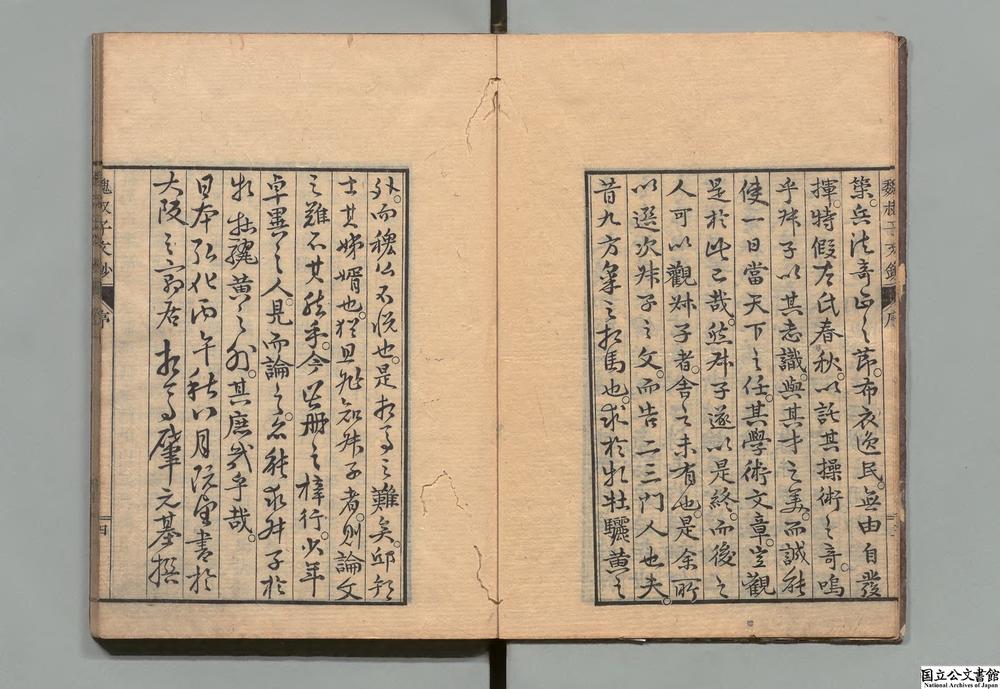 魏叔子文鈔 序
策。兵法奇正之節。布衣逸民。無由自發
揮。特假左氏春秋。以託其操術之奇。嗚
乎。叔子以其志識。與其才之美。而誠能
使一日當天下之任。其學術文章。豈觀
是於此已哉。然叔子遂以是終。而後之
人可以觀叔子者。舍之未有也。是余所
以選次叔子之文。而告二三門人也。夫
昔九方皐之相馬也。求於牝牡驪黃之
外。而穆公不悅也。是相馬之難矣。邱邦
士其姊婿也。猶且非知叔子者。則論文
之難不其然乎。今茲册之梓行。少年
卓異之人。見而論之。亦能求叔子於
牝牡驪黃之外。其庶幾乎哉。
日本弘化丙午秋八月既望書於
大阪之寓居 相馬肇元基撰
魏叔子文鈔 序 四
国立公文書館
National Archives of Japan